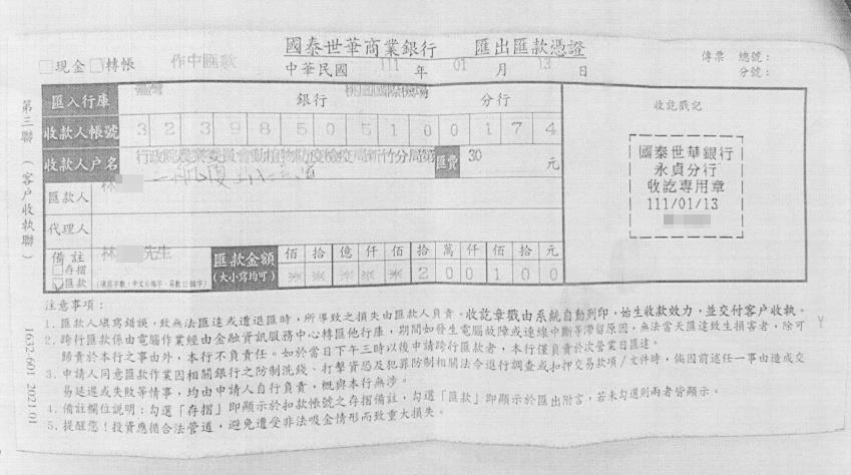 國泰世華商業銀行 匯出匯款憑證
□現金 □轉帳 作中匯款
中華民國 111 年 01 月 13 日
傳票 總號：
分號：
第三聯（客戶收執聯）
匯入行庫 臺灣 銀行 桃園國際機場 分行
收款人帳號 3 2 3 9 8 5 0 5 1 0 0 1 7 4
收款人户名 行政院農業委員會動植物防疫檢疫局新竹分局 匯費 30 元
匯款人 林
代理人
備註 林 先生
□存摺
匯款
匯款金額 佰 拾 億 仟 佰 拾 萬 仟 佰 拾 元
(大小寫均可) ＊ ＊ ＊ ＊ ＊ 2 0 0 1 0 0
收訖戳記
國泰世華銀行
永貞分行
收訖專用章
111/01/13
注意事項：
1. 匯款人填寫錯誤，致無法匯達或遭退匯時，所導致之損失由匯款人負責。收訖章戳由系統自動列印，始生收款效力，並交付客戶收執。
2. 跨行匯款係由電腦作業經由金融資訊服務中心轉匯他行庫，期間如發生電腦故障或連線中斷等滯留原因，無法當天匯達致生損害者，除可
歸責於本行之事由外，本行不負責任。如於當日下午三時以後申請跨行匯款者，本行僅負責於次營業日匯達。
3. 申請人同意匯款作業因相關銀行之防制洗錢、打擊資恐及犯罪防制相關法令進行調查或扣押交易款項／文件時，倘因前述任一事由造成交
易延遲或失敗等情事，均由申請人自行負責，概與本行無涉。
4. 備註欄位說明：勾選「存摺」即顯示於扣款帳號之存摺備註，勾選「匯款」即顯示於匯出附言，若未勾選則兩者皆顯示。
5. 提醒您！投資應循合法管道，避免遭受非法吸金情形而致重大損失。
1632-601 2021.01